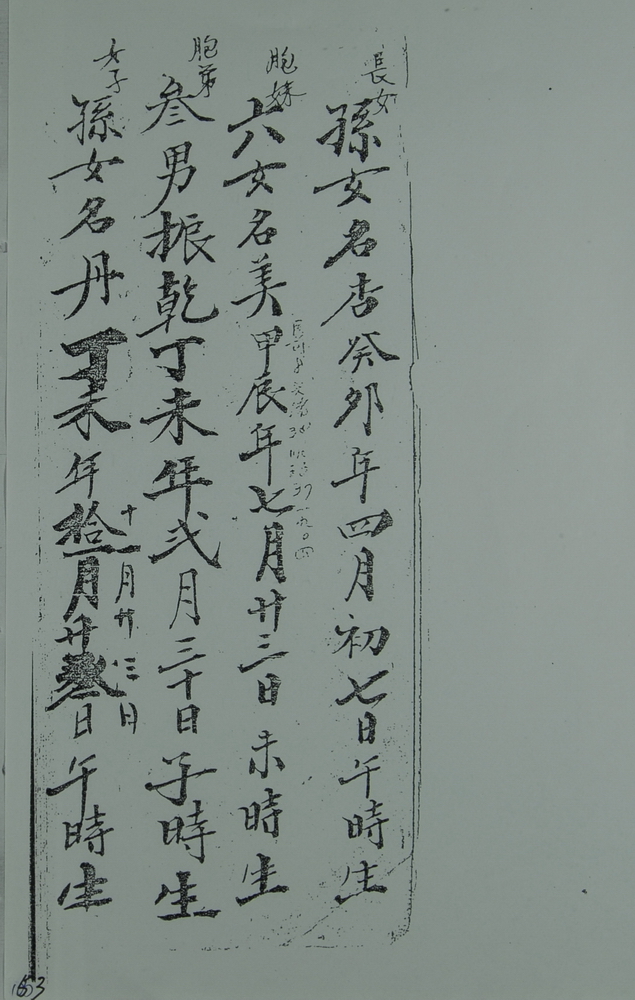 長女
孫女名杏癸卯年四月初七日午時生
胞妹
六女名美甲辰年七月廿三日未時生
一九〇四
胞弟
叁男振乾丁未年弍月三十日子時生
女子
孫女名丹丁未年拾一月廿叁日午時生
十一月廿三日